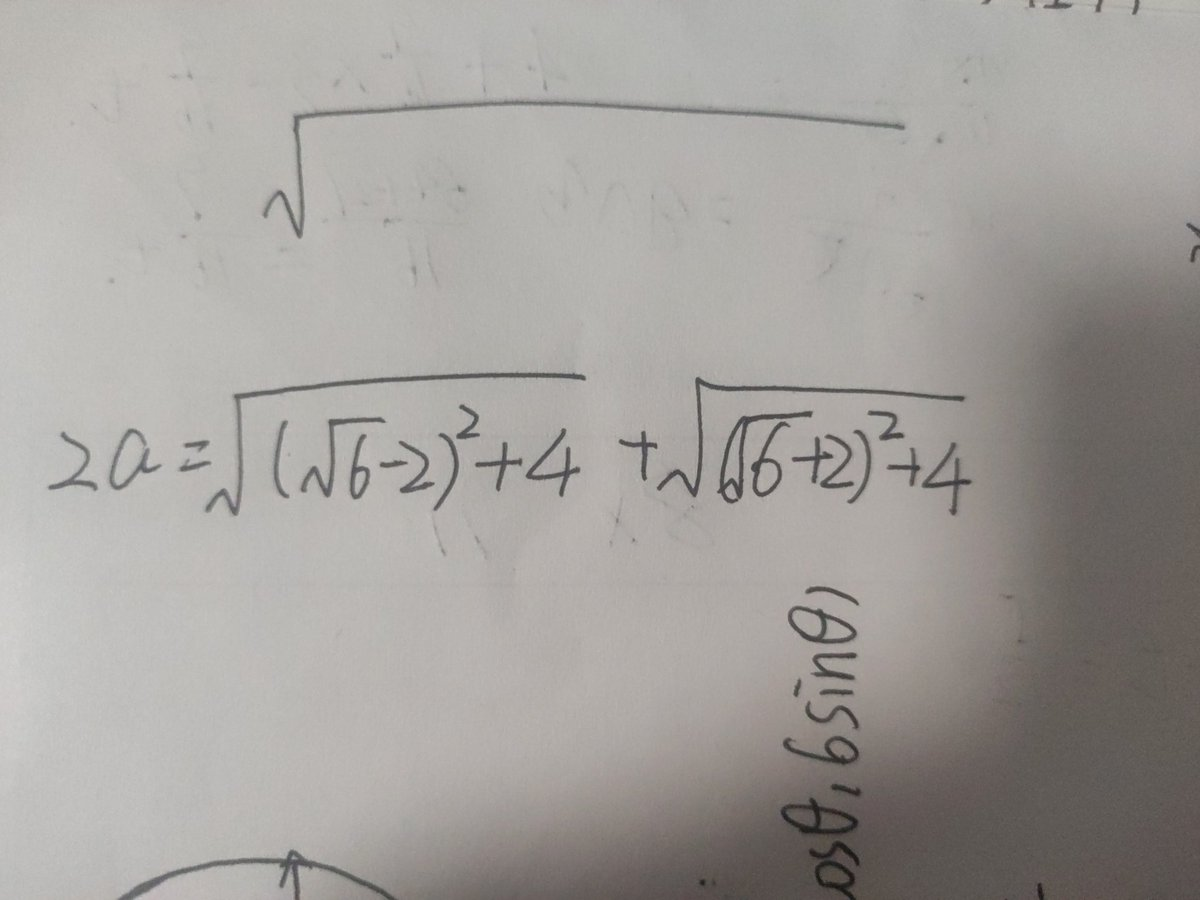 2a=√((√6-2)²+4) + √((√6+2)²+4)
cosθ, 6sinθ)